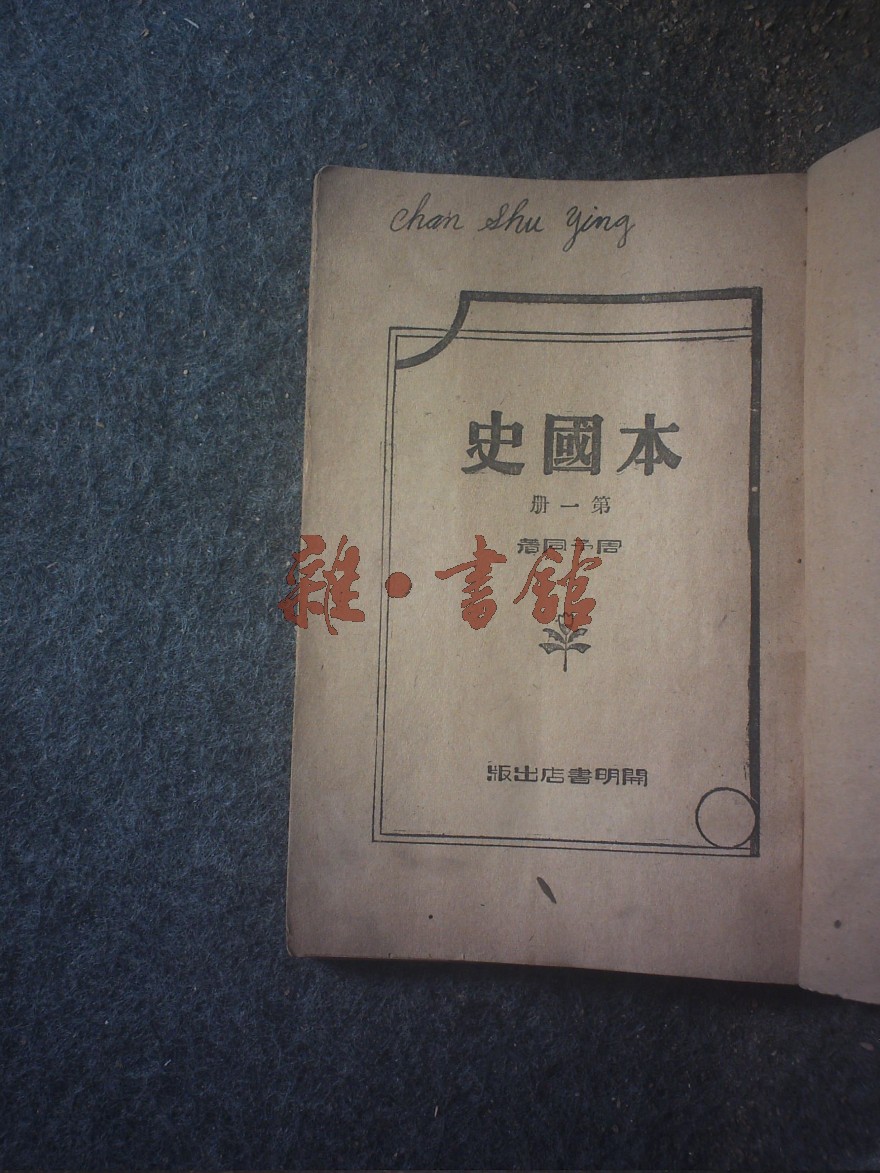 Chan Shu Ying
本國史
第一册
周予同着
雜·書館
開明書店出版